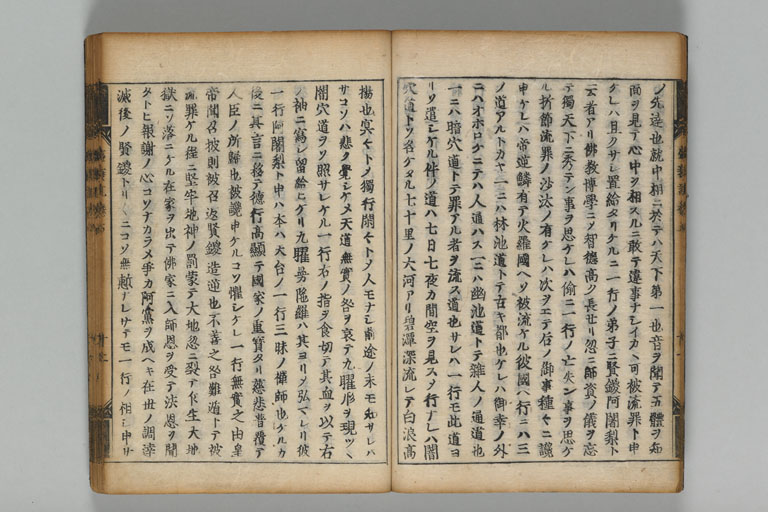 ノ先達也就中相ニ於テハ天下第一也音ヲ聞テ五體ヲ知
面ヲ見テ心中ヲ相スルニ敢テ違事ナシイカヽ可被流罪ト申
ケレハ且クサレ置給タリケルニ一行ノ弟子ニ賢鑁阿闍梨ト
云者アリ佛教博學ニメ智徳高ク長セリ忽ニ師資ノ儀ヲ忘
テ獨天下ニ秀テン事ヲ思ケレハ偷ニ一行ノ亡失ン事ヲ思ケ
ル折節流罪ノ沙汰ノ有ケレハ次ヲエテ后ノ御事種々ニ讒
申ケレハ帝逆鱗有テ火羅國ヘソ被流ケル彼國ヘ行ニハ三
ノ道アルトカヤ一ニハ林池道トテ古キ都也ケレハ御幸ノ外
ニハオホロケニテハ人通ハス一ニハ幽池道トテ雜人ノ通道也
一ニハ暗穴道トテ罪アル者ヲ流ス道也サレハ一行モ此道ヨ
リソ遣レケル件ノ道ハ七日七夜カ間空ヲ見スメ行ナレハ闇
穴道トソ名ケタル七十里ノ大河アリ碧潭深流レテ白浪高
揚也冥々トメ獨行闇々トメ人モナシ前途ノ末モ知サレハ
サコソハ悲ク覺シケメ天道無實ノ咎ヲ哀テ九曜形ヲ現ツヽ
闇穴道ヲソ照サレケル一行右ノ指ヲ食切テ其血ヲ以テ右
ノ袖ニ寫シ留給ヒケリ九曜曼陀羅ハ其ヨリソ弘マレリ彼
一行阿闍梨ト申ハ本ハ天台ノ一行三昧ノ禪師也ケルカ
後ニ真言ニ移テ德行高顯テ國家ノ重寶タリ慈悲普覆テ
人臣ノ所歸也被讒申ケルコソ懼シケレ一行無實之由皇
帝聞召披則被召返賢鑁造逆也不善之咎難遁トテ被
流罪ケル程ニ堅牢地神ノ罰蒙テ大地忽ニ裂テ乍生大地
獄ニソ落ニケル在家ヲ出テ佛家ニ入師恩ヲ受テ法恩ヲ聞
タトヒ報謝ノ心コソナカラメ爭カ阿黨ヲ成ヘキ在世ノ調達
滅後ノ賢鑁トリ〱ニコソ無慙ナレサテモ一行ノ相シ申サ